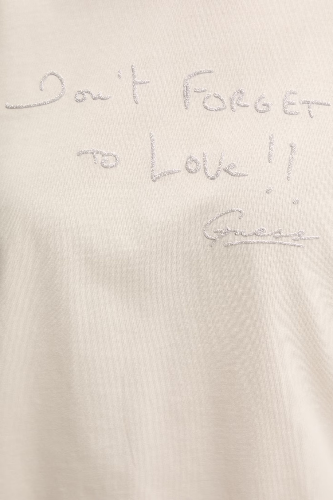 Don't FORGET
TO LOVE!!
Guess